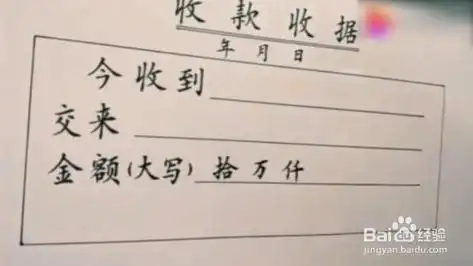 收款收据
年月日
今收到
交来
金额(大写) 拾万仟
Bai du 经验
jingyan.baidu.com